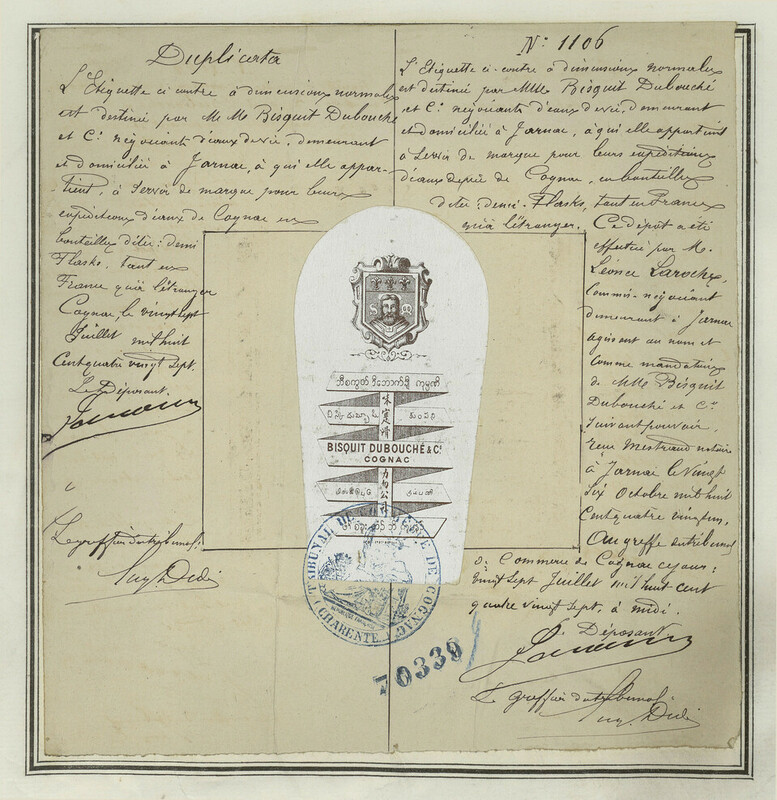 Duplicata
L'Etiquette ci contre à dimensions normales
est destinée par MM Bisquit Dubouché
et Cº négociants d'eaux de vie, demeurant
et domiciliés à Jarnac, à qui elle appar-
tient, à servir de marque pour leurs
expéditions d'eaux de Cognac en
bouteilles dites: demi
Flasks, tant en
France qu'à l'étranger
Cognac, le vingt sept
Juillet mil huit
Cent quatre vingt sept.
Le Déposant.
Le greffier du tribunal:
Nº 1106
L'Etiquette ci-contre à dimensions normales
est destinée par MMs Bisquit Dubouché
et Cº négociants d'eaux de vie, demeurant
et domiciliés à Jarnac, à qui elle appartient
à servir de marque pour leurs expéditions
d'eaux de vie de Cognac, en bouteilles
dites: demi-Flasks, tant en France
qu'à l'étranger. Ce dépôt a été
effectué par M.
Léonce Laroche,
Commis-négociant
demeurant à Jarnac
agissant au nom et
comme mandataire
de MMs Bisquit
Dubouché et Cº
suivant pouvoir
reçu Mestraud notaire
à Jarnac le vingt
six Octobre mil huit
Cent quatre vingt un,
Au greffe du tribunal
de Commerce de Cognac ce jour:
vingt sept Juillet mil huit cent
quatre vingt sept, à midi.
Le Déposant
Le greffier du tribunal:
BISQUIT DUBOUCHÉ & Cº
COGNAC
TRIBUNAL DE COMMERCE DE COGNAC
(CHARENTE)
70339